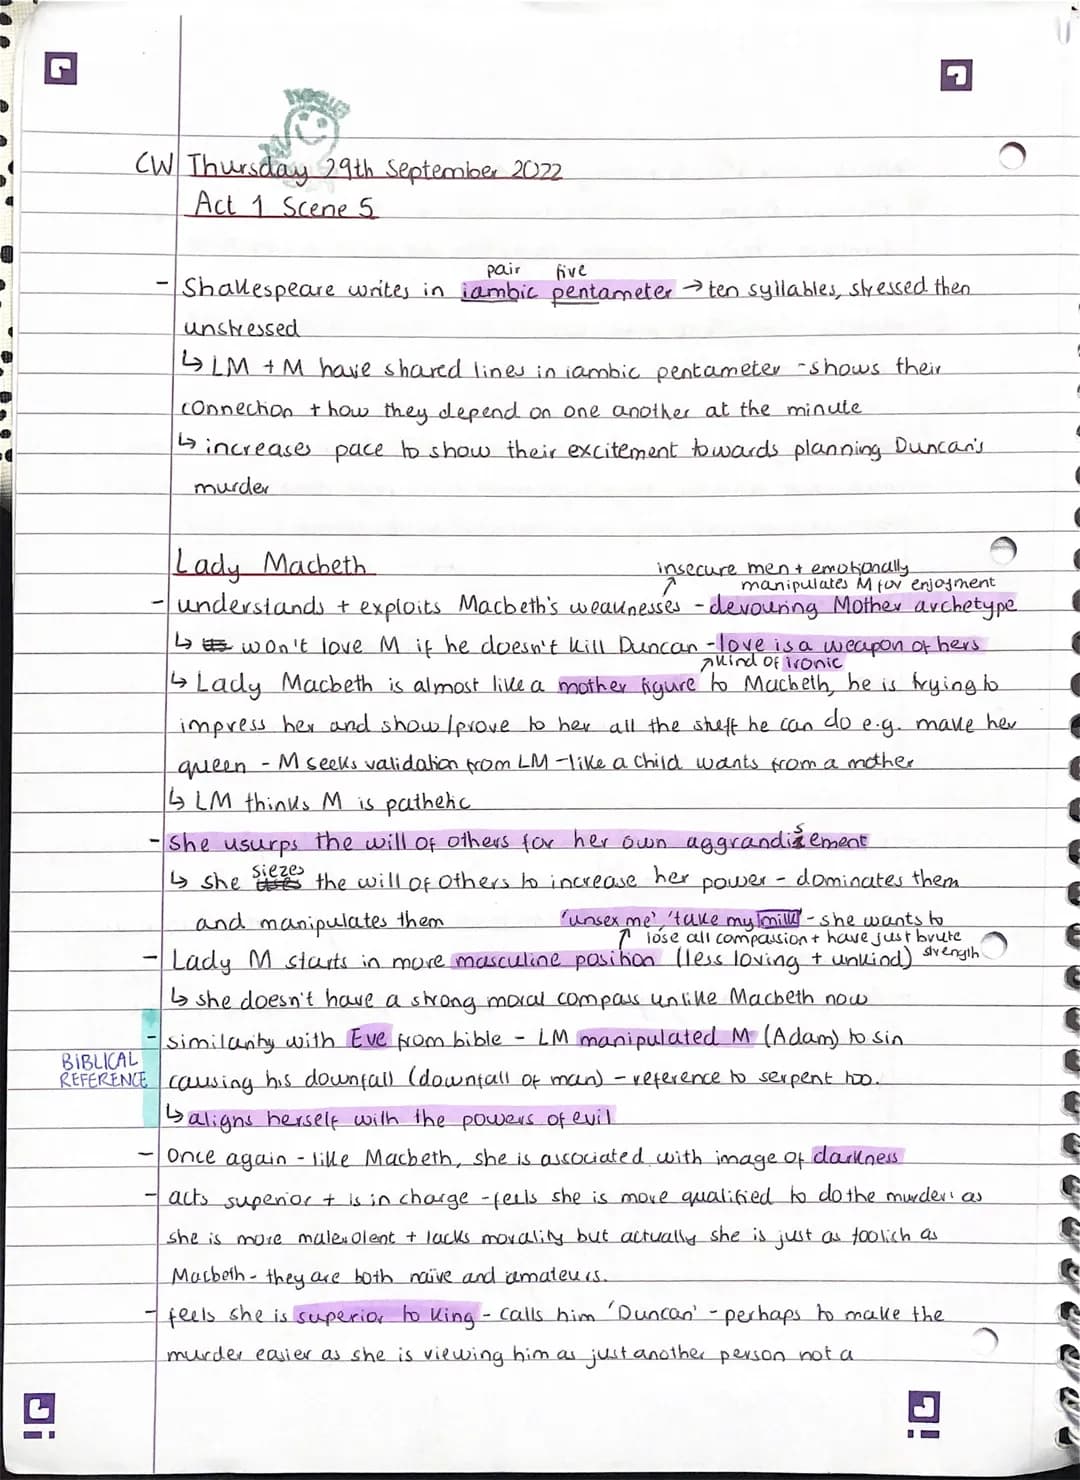 CW Thursday 29th September 2022
Act 1 Scene 5
pair five
- Shakespeare writes in iambic pentameter → ten syllables, stressed then
unstressed
↳ LM + M have shared lines in iambic pentameter - shows their
connection + how they depend on one another at the minute
↳ increases pace to show their excitement towards planning Duncan's
murder
Lady Macbeth
insecure men + emotionally
manipulates M for enjoyment
- understands + exploits Macbeth's weaknesses - devouring Mother archetype
↳ won't love M if he doesn't kill Duncan - love is a weapon of hers
↗ kind of ironic
↳ Lady Macbeth is almost like a mother figure to Macbeth, he is trying to
impress her and show/prove to her all the stuff he can do e.g. make her
queen - M seeks validation from LM - like a child wants from a mother
↳ LM thinks M is pathetic
- she usurps the will of others for her own aggrandisement
↳ she siezes the will of others to increase her power - dominates them
and manipulates them
'unsex me', 'take my milk' - she wants to
↑ lose all compassion + have just brute
strength
- Lady M starts in more masculine position (less loving + unkind)
↳ she doesn't have a strong moral compass unlike Macbeth now
- similarity with Eve from bible - LM manipulated M (Adam) to sin
BIBLICAL
REFERENCE
causing his downfall (downfall of man) - reference to serpent too.
↳ aligns herself with the powers of evil
- Once again - like Macbeth, she is associated with image of darkness
- acts superior + is in charge - feels she is more qualified to do the murder as
she is more malevolent + lacks morality but actually she is just as foolich as
Macbeth - they are both naïve and amateurs.
- feels she is superior to King - calls him 'Duncan' - perhaps to make the
murder easier as she is viewing him as just another person not a